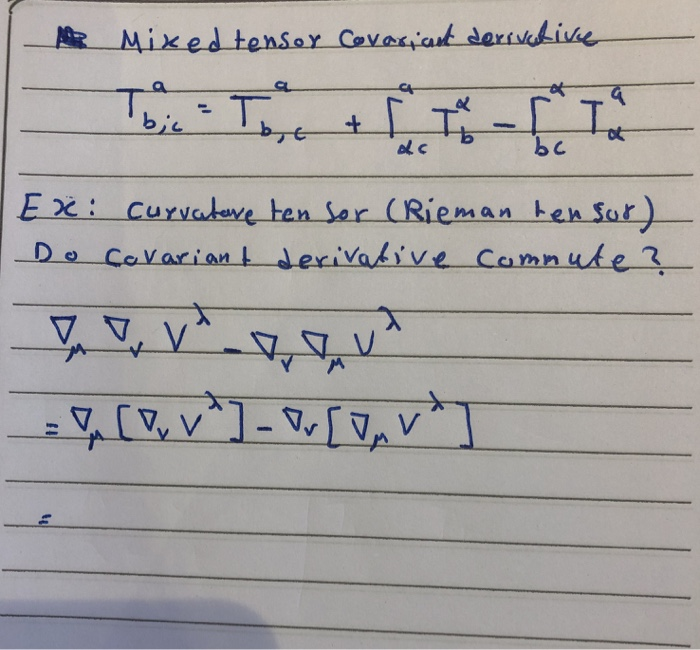 Mixed tensor Covariant derivative
T^a_{b;c} = T^a_{b,c} + Γ^a_{αc} T^α_b - Γ^α_{bc} T^a_α
Ex: Curvature tensor (Rieman tensor)
Do Covariant derivative Commute?
∇_μ ∇_ν V^λ - ∇_ν ∇_μ V^λ
= ∇_μ [∇_ν V^λ] - ∇_ν [∇_μ V^λ]
=